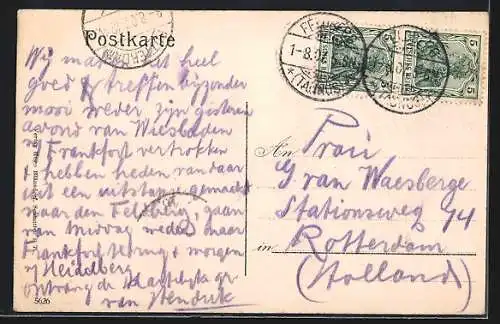 Postkarte
Wij maken het heel
goed & treffen bijzonder
mooi weder, zijn gisteren
avond van Wiesbaden
n/ Frankfort vertrokken
& hebben heden vandaar
uit een uitstapje gemaakt
naar den Feldberg, gaan
van middag weder naar
Frankfort terug & morgen
n/ Heidelberg
ontvang de hartelijke gr.
van Hendrik
An Frau
G van Waesberge
Stationsweg 74
in Rotterdam
(Holland)
5626
1-8.02
(TAUNUS)
5
5